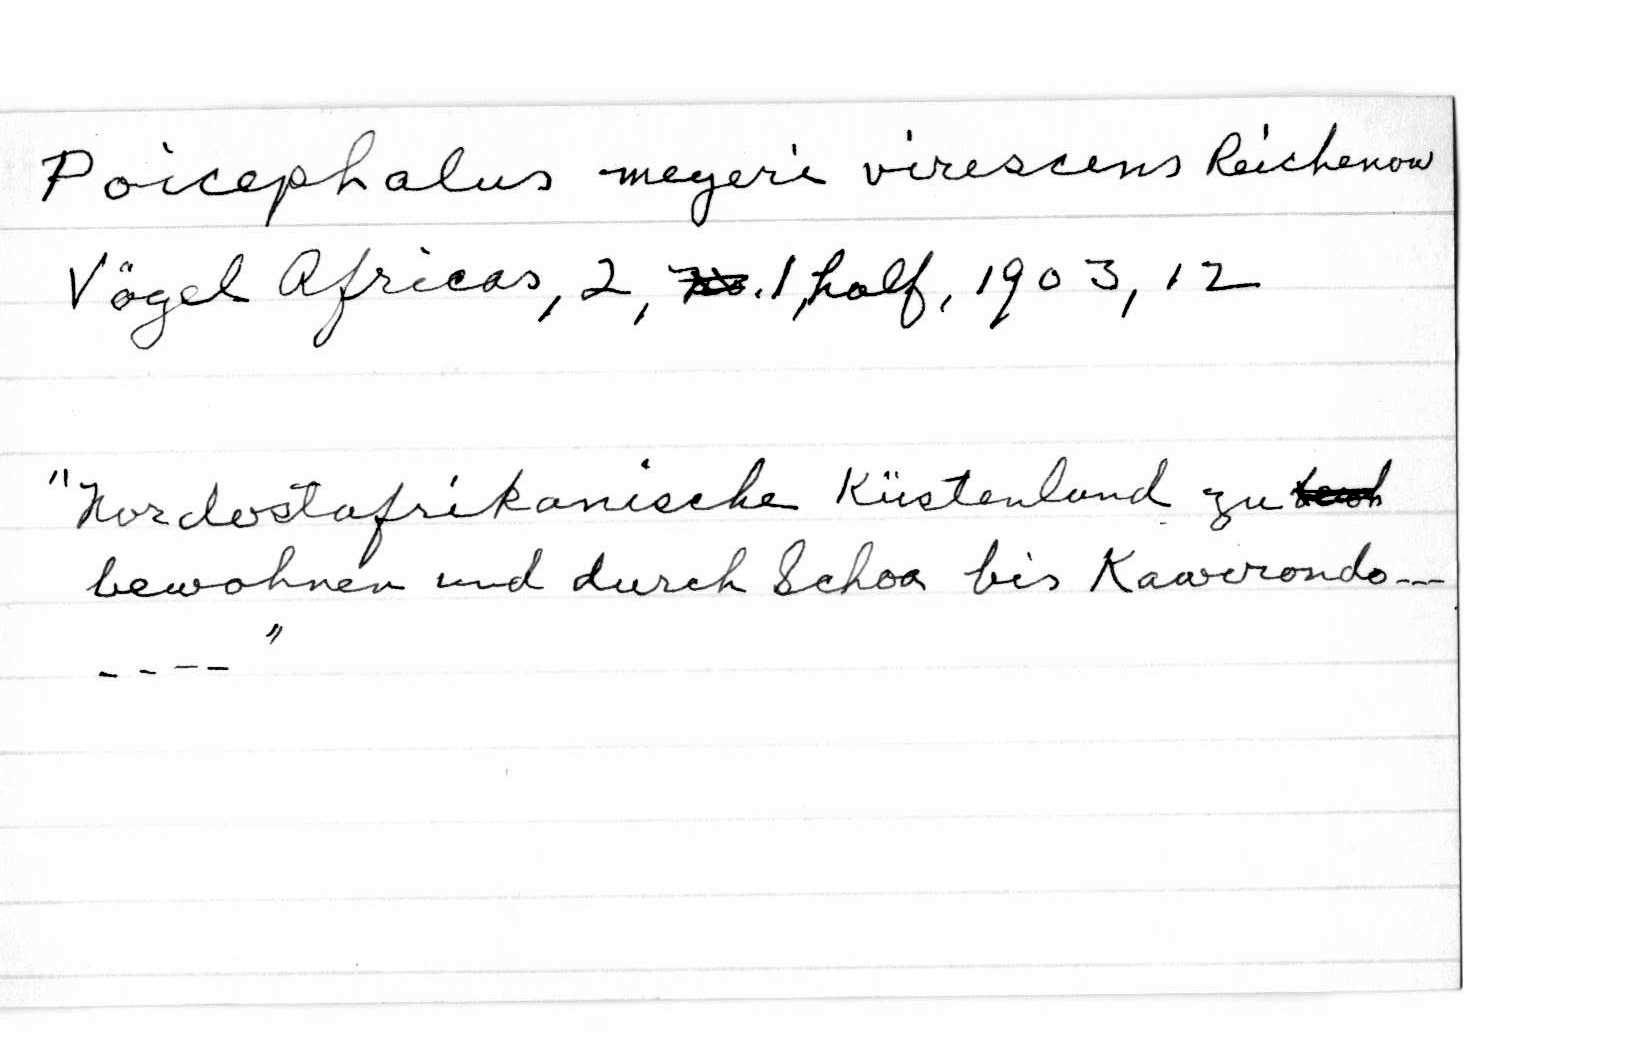 Poicephalus meyeri virescens Reichenow
Vögel Africas, 2, No. 1, half, 1903, 12
"Nordostafrikanische Küstenland zu
bewohnen und durch Schoa bis Kawirondo ---
----"